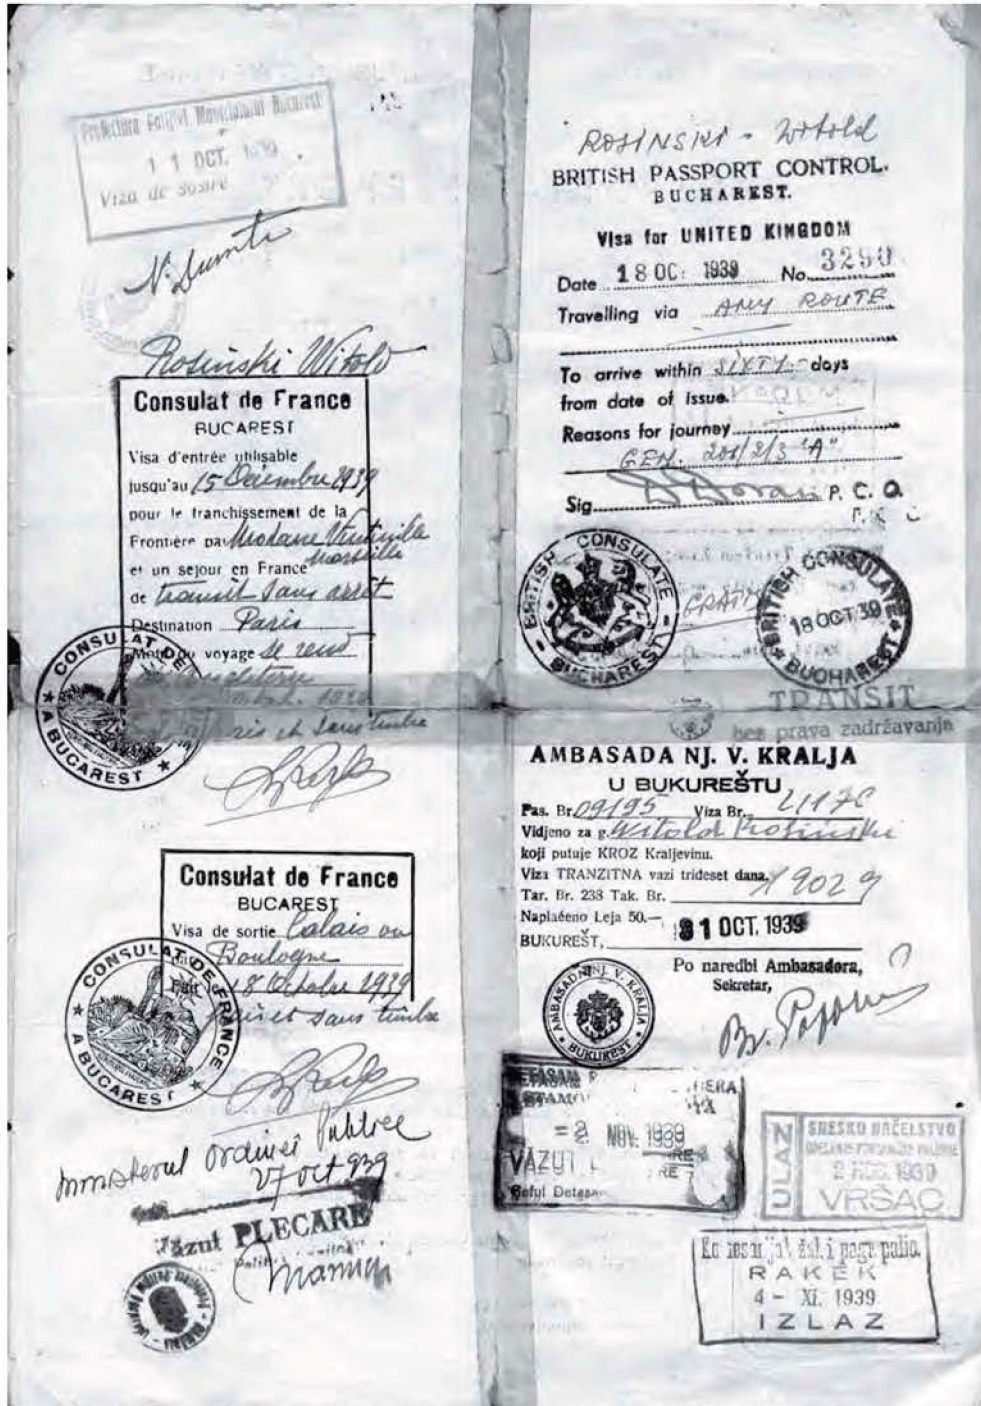 Prefectura Poliției Municipiului București
11 OCT. 1939
Viza de sosire
N. Dumitr
Rosiński Witold
Consulat de France
BUCAREST
Visa d'entrée utilisable
jusqu'au 15 Décembre 1939
pour le franchissement de la
Frontière par Modane Vintimille
Marseille
et un sejour en France
de transit sans arrêt
Destination Paris
Motif du voyage se rend
Angleterre
et sans timbre
CONSULAT DE
A BUCAREST
Consulat de France
BUCAREST
Visa de sortie Calais ou
Boulogne
18 Octobre 1939
et sans timbre
CONSULAT DE FRANCE
A BUCAREST
Ministerul Ordinei Publice
27 Oct 939
Văzut PLECARE
ROSINSKI - Witold
BRITISH PASSPORT CONTROL.
BUCHAREST.
Visa for UNITED KINGDOM
Date 18 OC: 1939 No. 3290
Travelling via ANY ROUTE
To arrive within SIXTY days
from date of issue.
Reasons for journey
GEN: 200/2/3 "A"
Sig. P. C. O.
BRITISH CONSULATE
BUCHAREST
GRATIS
BRITISH CONSULATE
18 OCT 39
BUCHAREST
TRANSIT
bez prava zadržavanja
AMBASADA NJ. V. KRALJA
U BUKUREŠTU
Pas. Br. 09195 Viza Br. 21176
Vidjeno za g. Witold Rosinski
koji putuje KROZ Kraljevinu.
Viza TRANZITNA vazi trideset dana.
Tar. Br. 238 Tak. Br. 19029
Naplaćeno Leja 50.—
BUKUREŠT, 31 OCT. 1939
Po naredbi Ambasadora,
Sekretar,
AMBASADA NJ. V. KRALJA
BUKUREŠT
= 2 NOV. 1939
VĂZUT
Șeful Detașam
ULAZ
SRESKO NAČELSTVO
2 NOV. 1939
VRŠAC
RAKEK
4 - XI. 1939
IZLAZ